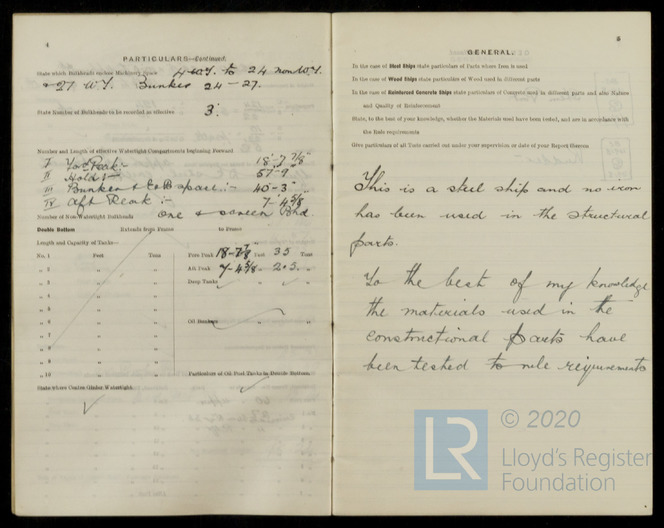 4
PARTICULARS—Continued.
State which Bulkheads enclose Machinery Space 4 W.T. to 24 non W.T.
& 27 W.T. Bunker 24-27.
State Number of Bulkheads to be recorded as effective 3.
Number and Length of effective Watertight Compartments beginning Forward
I Fore Peak :- 18-7 7/8 "
II Hold :- 57-9 "
III Bunker & E & B space :- 40-3 "
IV Aft Peak :- 7-4 5/8 "
Number of Non-Watertight Bulkheads One & screen Bhd.
Double Bottom Extends from Frame to Frame
Length and Capacity of Tanks—
No. 1 Feet Tons Fore Peak 18-7 7/8 Feet 35 Tons
" 2 " " Aft Peak 7-4 5/8 " 20.5 "
" 3 " " Deep Tanks " "
" 4 " "
" 5 " "
" 6 " " Oil Bunkers " "
" 7 " "
" 8 " "
" 9 " "
" 10 " " Particulars of Oil Fuel Tanks in Double Bottom.
State where Centre Girder Watertight.
5
GENERAL.
In the case of Steel Ships state particulars of Parts where Iron is used
In the case of Wood Ships state particulars of Wood used in different parts
In the case of Reinforced Concrete Ships state particulars of Concrete used in different parts and also Nature
and Quality of Reinforcement
State, to the best of your knowledge, whether the Materials used have been tested, and are in accordance with
the Rule requirements
Give particulars of all Tests carried out under your supervision or date of your Report thereon
This is a steel ship and no iron
has been used in the structural
parts.
To the best of my knowledge
the materials used in the
constructional parts have
been tested to rule requirements
LR
© 2020
Lloyd's Register
Foundation